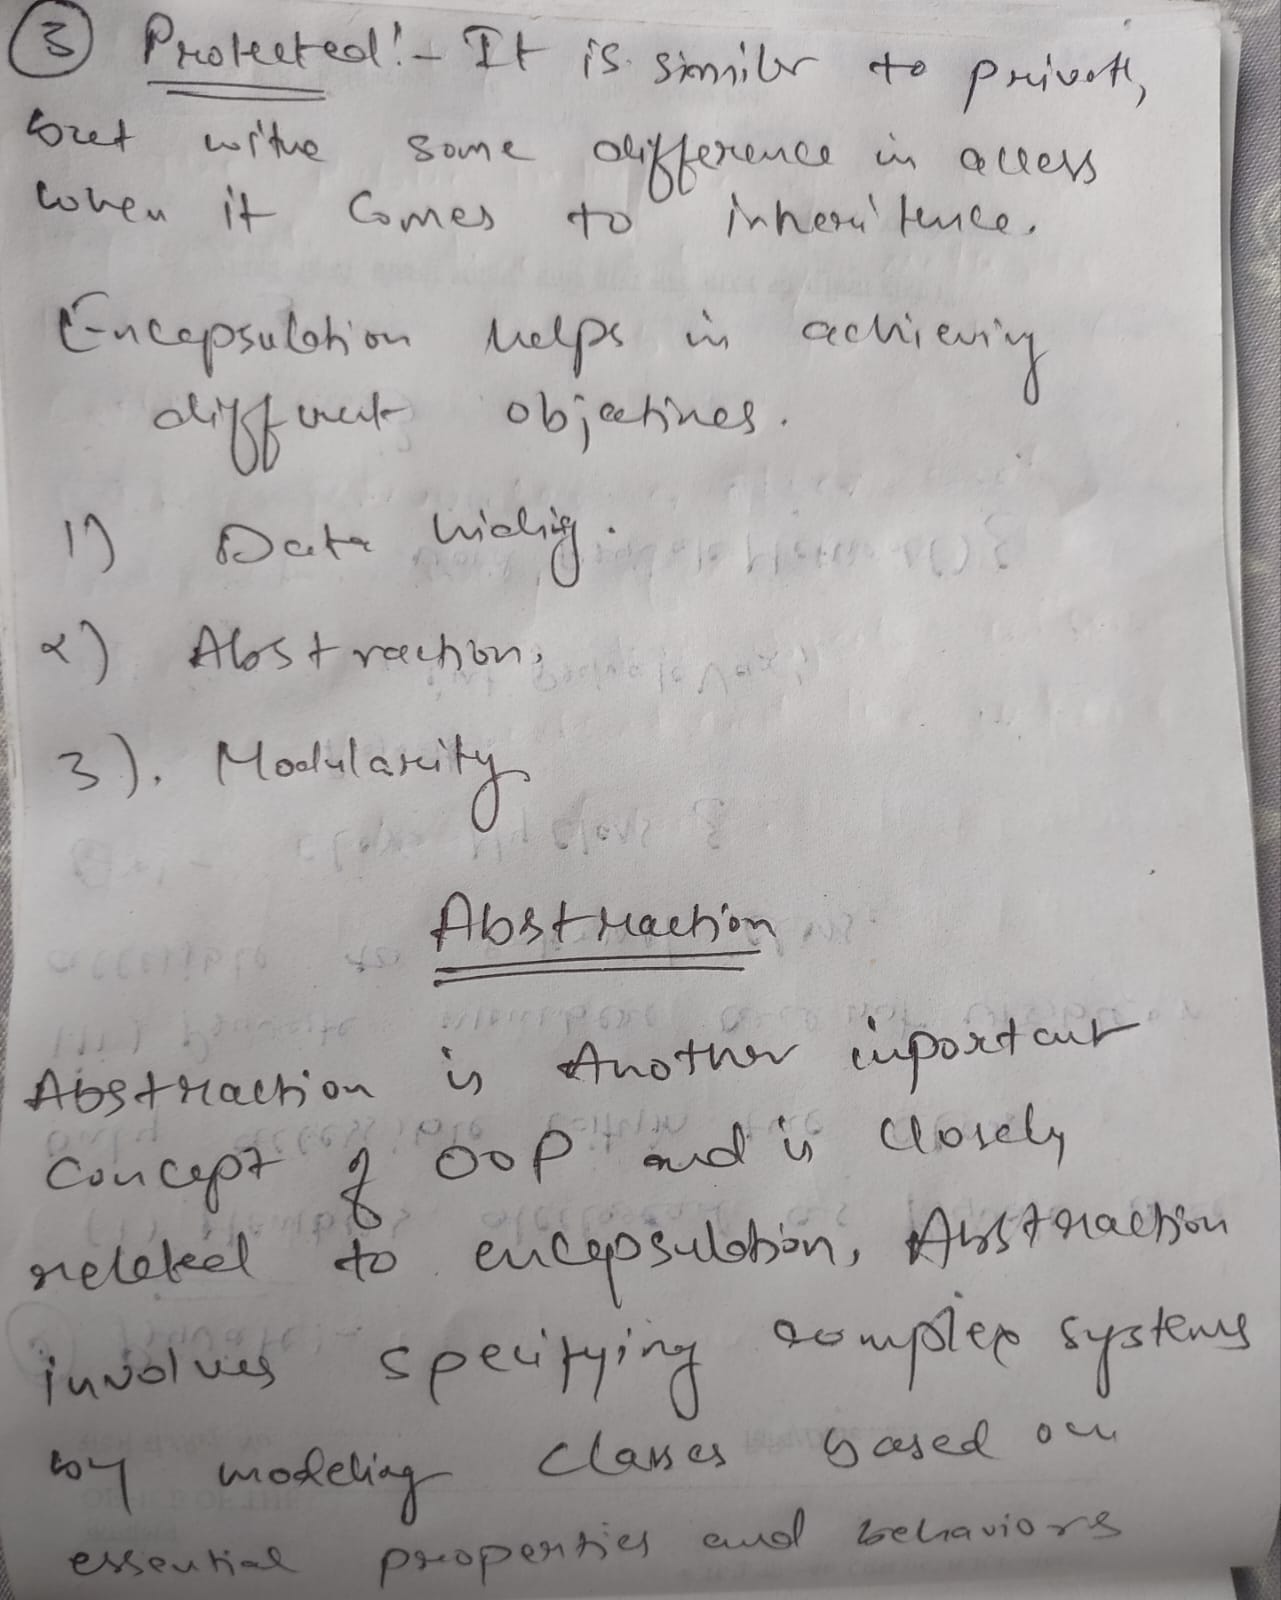 ③ Protected:- It is similar to private,
but with some difference in access
when it comes to inheritence.
Encapsulation helps in achieving
different objectives.
1) Data hiding.
2) Abstraction,
3). Modularity
Abstraction
Abstraction is Another important
concept of OOP and is closely
related to encapsulation, Abstraction
involves specifying complex systems
by modeling classes based on
essential properties and behaviors